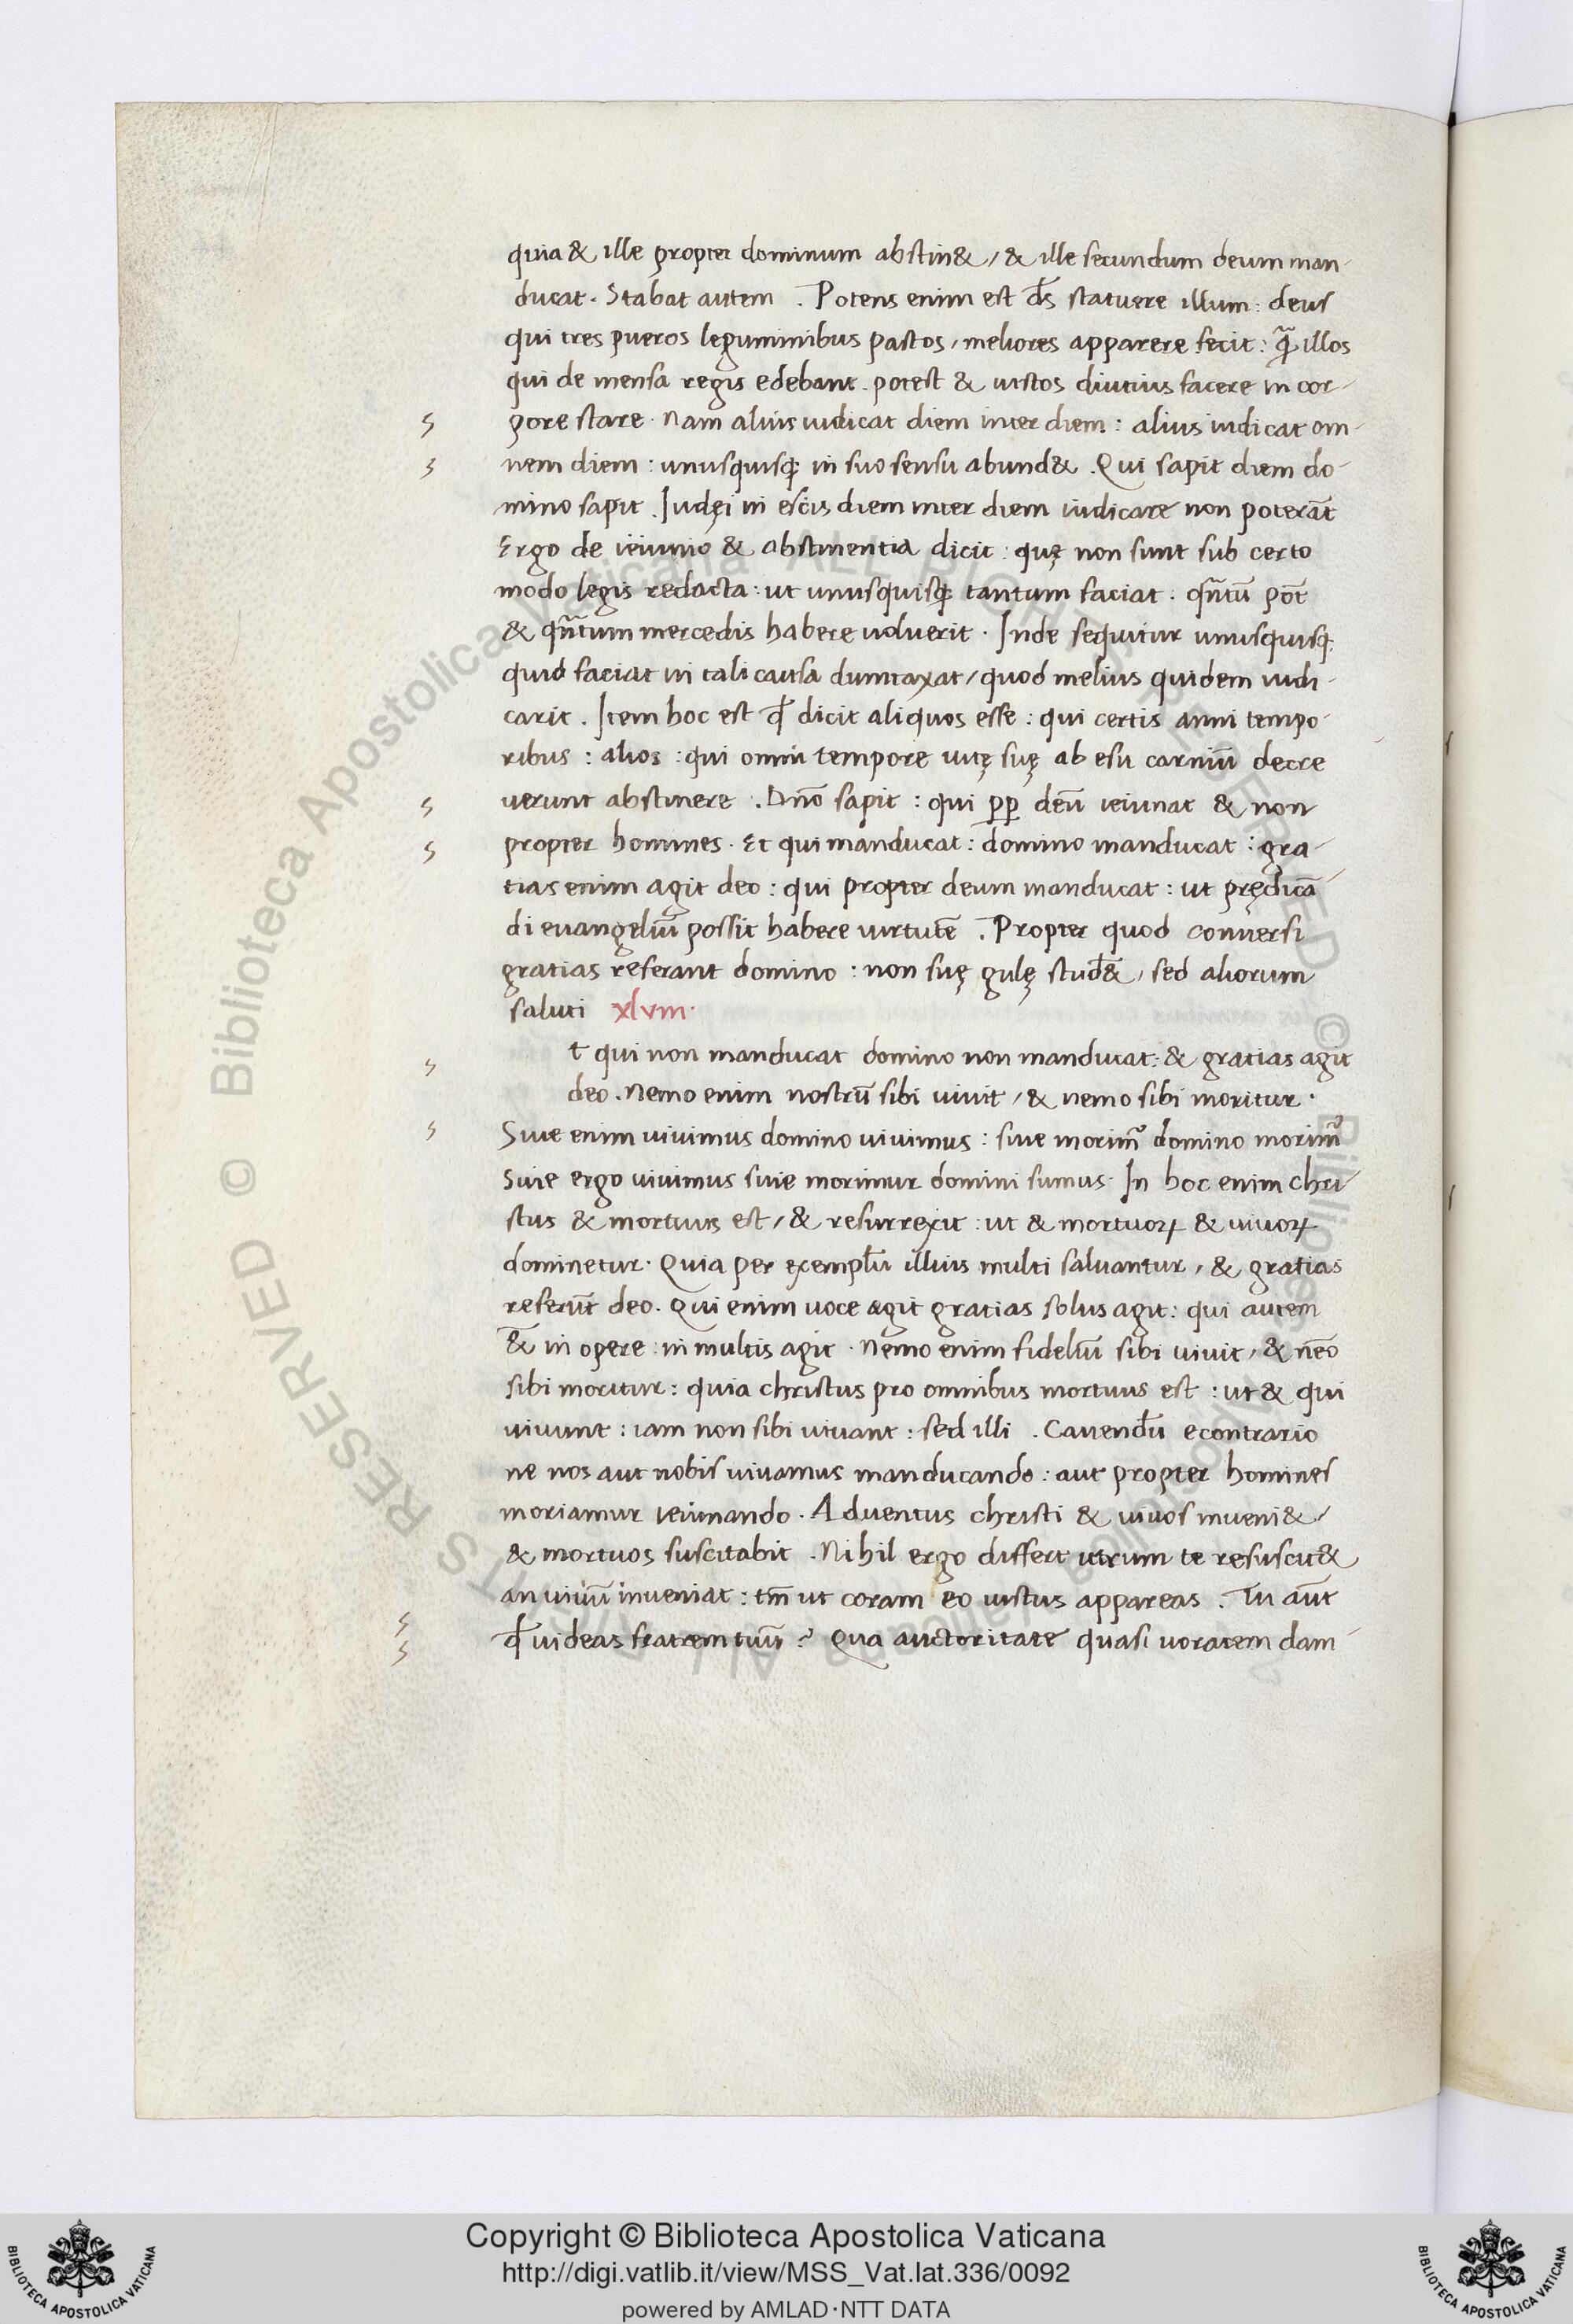 quia & ille propter dominum abstin& / & ille secundum deum man-
ducat. Stabat autem . Potens enim est d̄s statuere illum: deus
qui tres pueros leguminibus pastos / meliores apparere fecit: q̄ illos
qui de mensa regis edebant. potest & iustos diutius facere in cor-
pore stare. Nam alius iudicat diem inter diem: alius iudicat om-
nem diem: unusquisq; in suo sensu abund&. Qui sapit diem do-
mino sapit. Iudęi in escis diem inter diem iudicare non poterāt
Ergo de ieiunio & abstinentia dicit: quę non sunt sub certo
modo legis redacta: ut unusquisq; tantum faciat. qn̄tū pōt
& qn̄tum mercedis habere uoluerit. Inde sequitur unusquisq;
quid faciat in tali causa dumtaxat / quod melius quidem iudi-
carit. Item hoc est qđ dicit aliquos esse: qui certis anni tempo-
ribus: alios: qui omni tempore uitę suę ab esu carniū decre
uerunt abstinere. Dn̄o sapit: qui pp̄ deū ieiunat & non
propter homines. Et qui manducat: domino manducat: gra-
tias enim agit deo: qui propter deum manducat: ut prędicā
di euangeliū possit habere uirtutē. Propter quod conuersi
gratias referant domino: non suę gulę stud& / sed aliorum
saluti xlvııı.
t qui non manducat domino non manducat: & gratias agit
deo. Nemo enim nostrū sibi uiuit / & nemo sibi moritur.
Siue enim uiuimus domino uiuimus: siue morim᷒ domino morim᷒
Siue ergo uiuimus siue morimur domini sumus. In hoc enim chri-
stus & mortuus est / & resurrexit: ut & mortuoꝝ & uiuoꝝ
dominetur. Quia per exemplū illius multi saluantur / & gratias
referūt deo. Qui enim uoce agit gratias solus agit: qui autem
&̄ in opere: in multis agit. Nemo enim fideliū sibi uiuit / & nēo
sibi moritur: quia christus pro omnibus mortuus est: ut & qui
uiuunt: iam non sibi uiuant: sed illi. Cauendū econtrario
ne nos aut nobis uiuamus manducando: aut propter homines
moriamur ieiunando. Aduentus christi & uiuos inueni& /
& mortuos suscitabit. Nihil ergo differt utrum te resuscit&
an uiuū inueniat: tm̄ ut coram eo iustus appareas. Tu aūt
qđ uideas fratrem tuū? Qua auctoritate quasi uoratem dam-
Copyright © Biblioteca Apostolica Vaticana
http://digi.vatlib.it/view/MSS_Vat.lat.336/0092
powered by AMLAD·NTT DATA
BIBLIOTECA APOSTOLICA VATICANA
BIBLIOTECA APOSTOLICA VATICANA